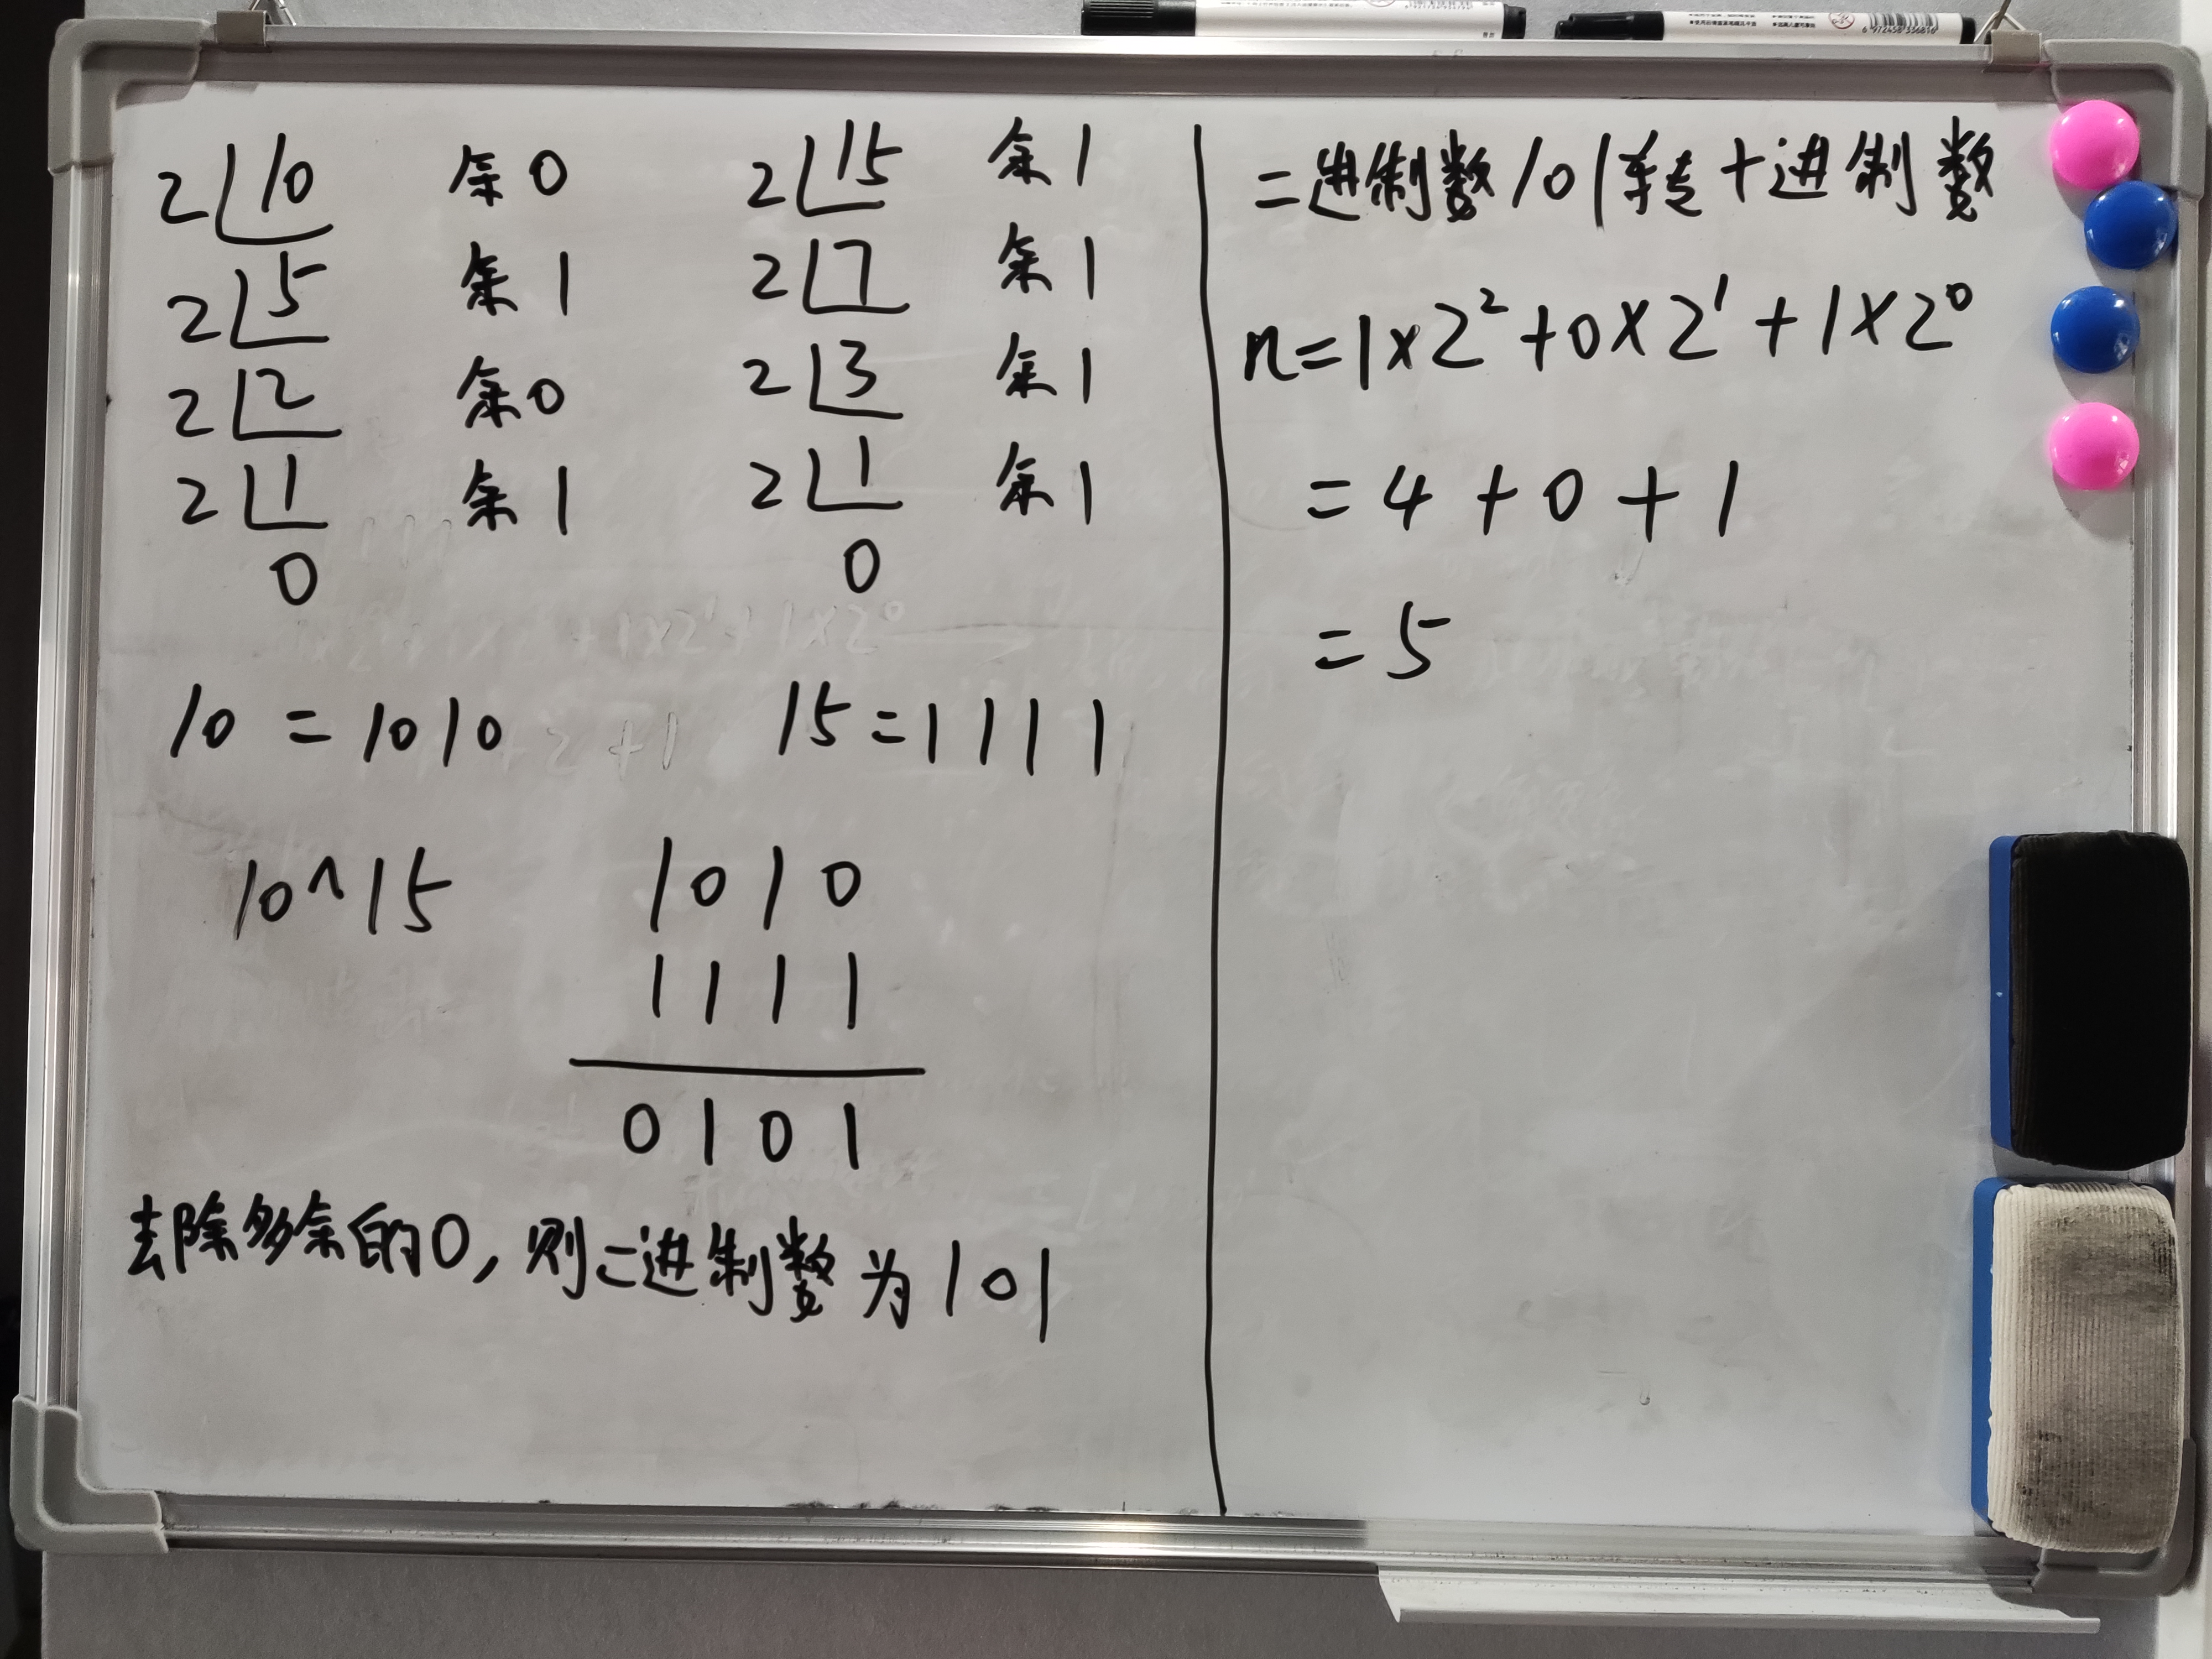 2 10 余0
2 5 余1
2 2 余0
2 1 余1
0
2 15 余1
2 7 余1
2 3 余1
2 1 余1
0
10 = 1010
15 = 1111
10^15
1010
1111
0101
去除多余的0,则二进制数为101
二进制数101转十进制数
n=1×2²+0×2¹+1×2⁰
=4+0+1
=5